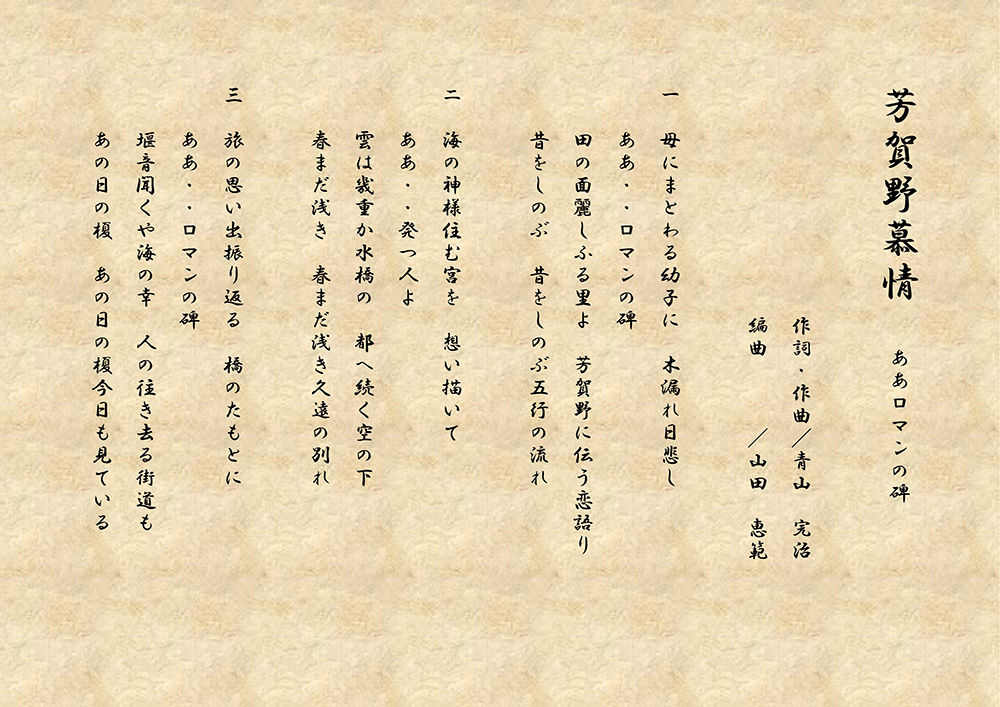 芳賀野慕情　ああロマンの碑
作詞・作曲／青山　完治
編曲　　　／山田　恵範
一　母にまとわる幼子に　木漏れ日悲し
ああ・・ロマンの碑
田の面麗しふる里よ　芳賀野に伝う恋語り
昔をしのぶ　昔をしのぶ五行の流れ
二　海の神様住む宮を　想い描いて
ああ・・発つ人よ
雲は幾重か水橋の　都へ続く空の下
春まだ浅き　春まだ浅き久遠の別れ
三　旅の思い出振り返る　橋のたもとに
ああ・・ロマンの碑
堰音聞くや海の幸　人の往き去る街道も
あの日の榎　あの日の榎今日も見ている